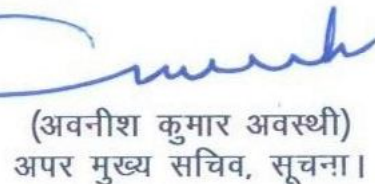 (अवनीश कुमार अवस्थी)
अपर मुख्य सचिव, सूचना।